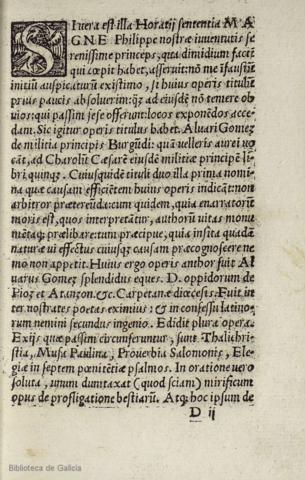 SI vera est illa Horatij sententia MA
GNE Philippe nostræ iuuentutis se
renissime princeps, qua dimidium facti
qui cœpit habet, asseruit: nō me īfaustū
initiū auspicaturū existimo, si huius operis titulū
prius paucis absoluerim: q̃ ad eiusdē nō temere ob
uios: qui passim sese offerunt: locos exponēdos acce-
dam. Sic igitur operis titulus habet. Aluari Gomez
de militia principis Burgūdi: quā velleris aurei vo
cāt, ad Charolū Cæsarē eiusdē militiæ principē li-
bri quinq;. Cuiusquidē tituli duo illa prima nomi-
na quæ causam efficiētem huius operis indicāt: non
arbitror prætereūda: cum quidem, quia enarratorū
moris est, quos interpretātur, authorū vitas monu
mētaq; prælibare: tum præcipue, quia insita quadā
naturæ vi effectus cuiusq; causam præcognoscere ne
mo non appetit. Huius ergo operis anthor fuit Al
uarus Gomez splendidus eques. D. oppidorum de
Pioz et Atanzon. &c. Carpetanæ diœcesis. Fuit in
ter nostrates poetas eximius: & in confessu latino-
rum nemini secundus ingenio. Edidit plura opera.
Ex ijs quæ passim circunferuntur, sunt. Thalichri-
stia, Musa Paulina, Prouerbia Salomonis, Ele-
giæ in septem pœnitētiæ psalmos. In oratione vero
soluta, vnum duntaxat (quod sciam) mirificum
opus de profligatione bestiarū. Atq; hoc ipsum de
D ij
Biblioteca de Galicia